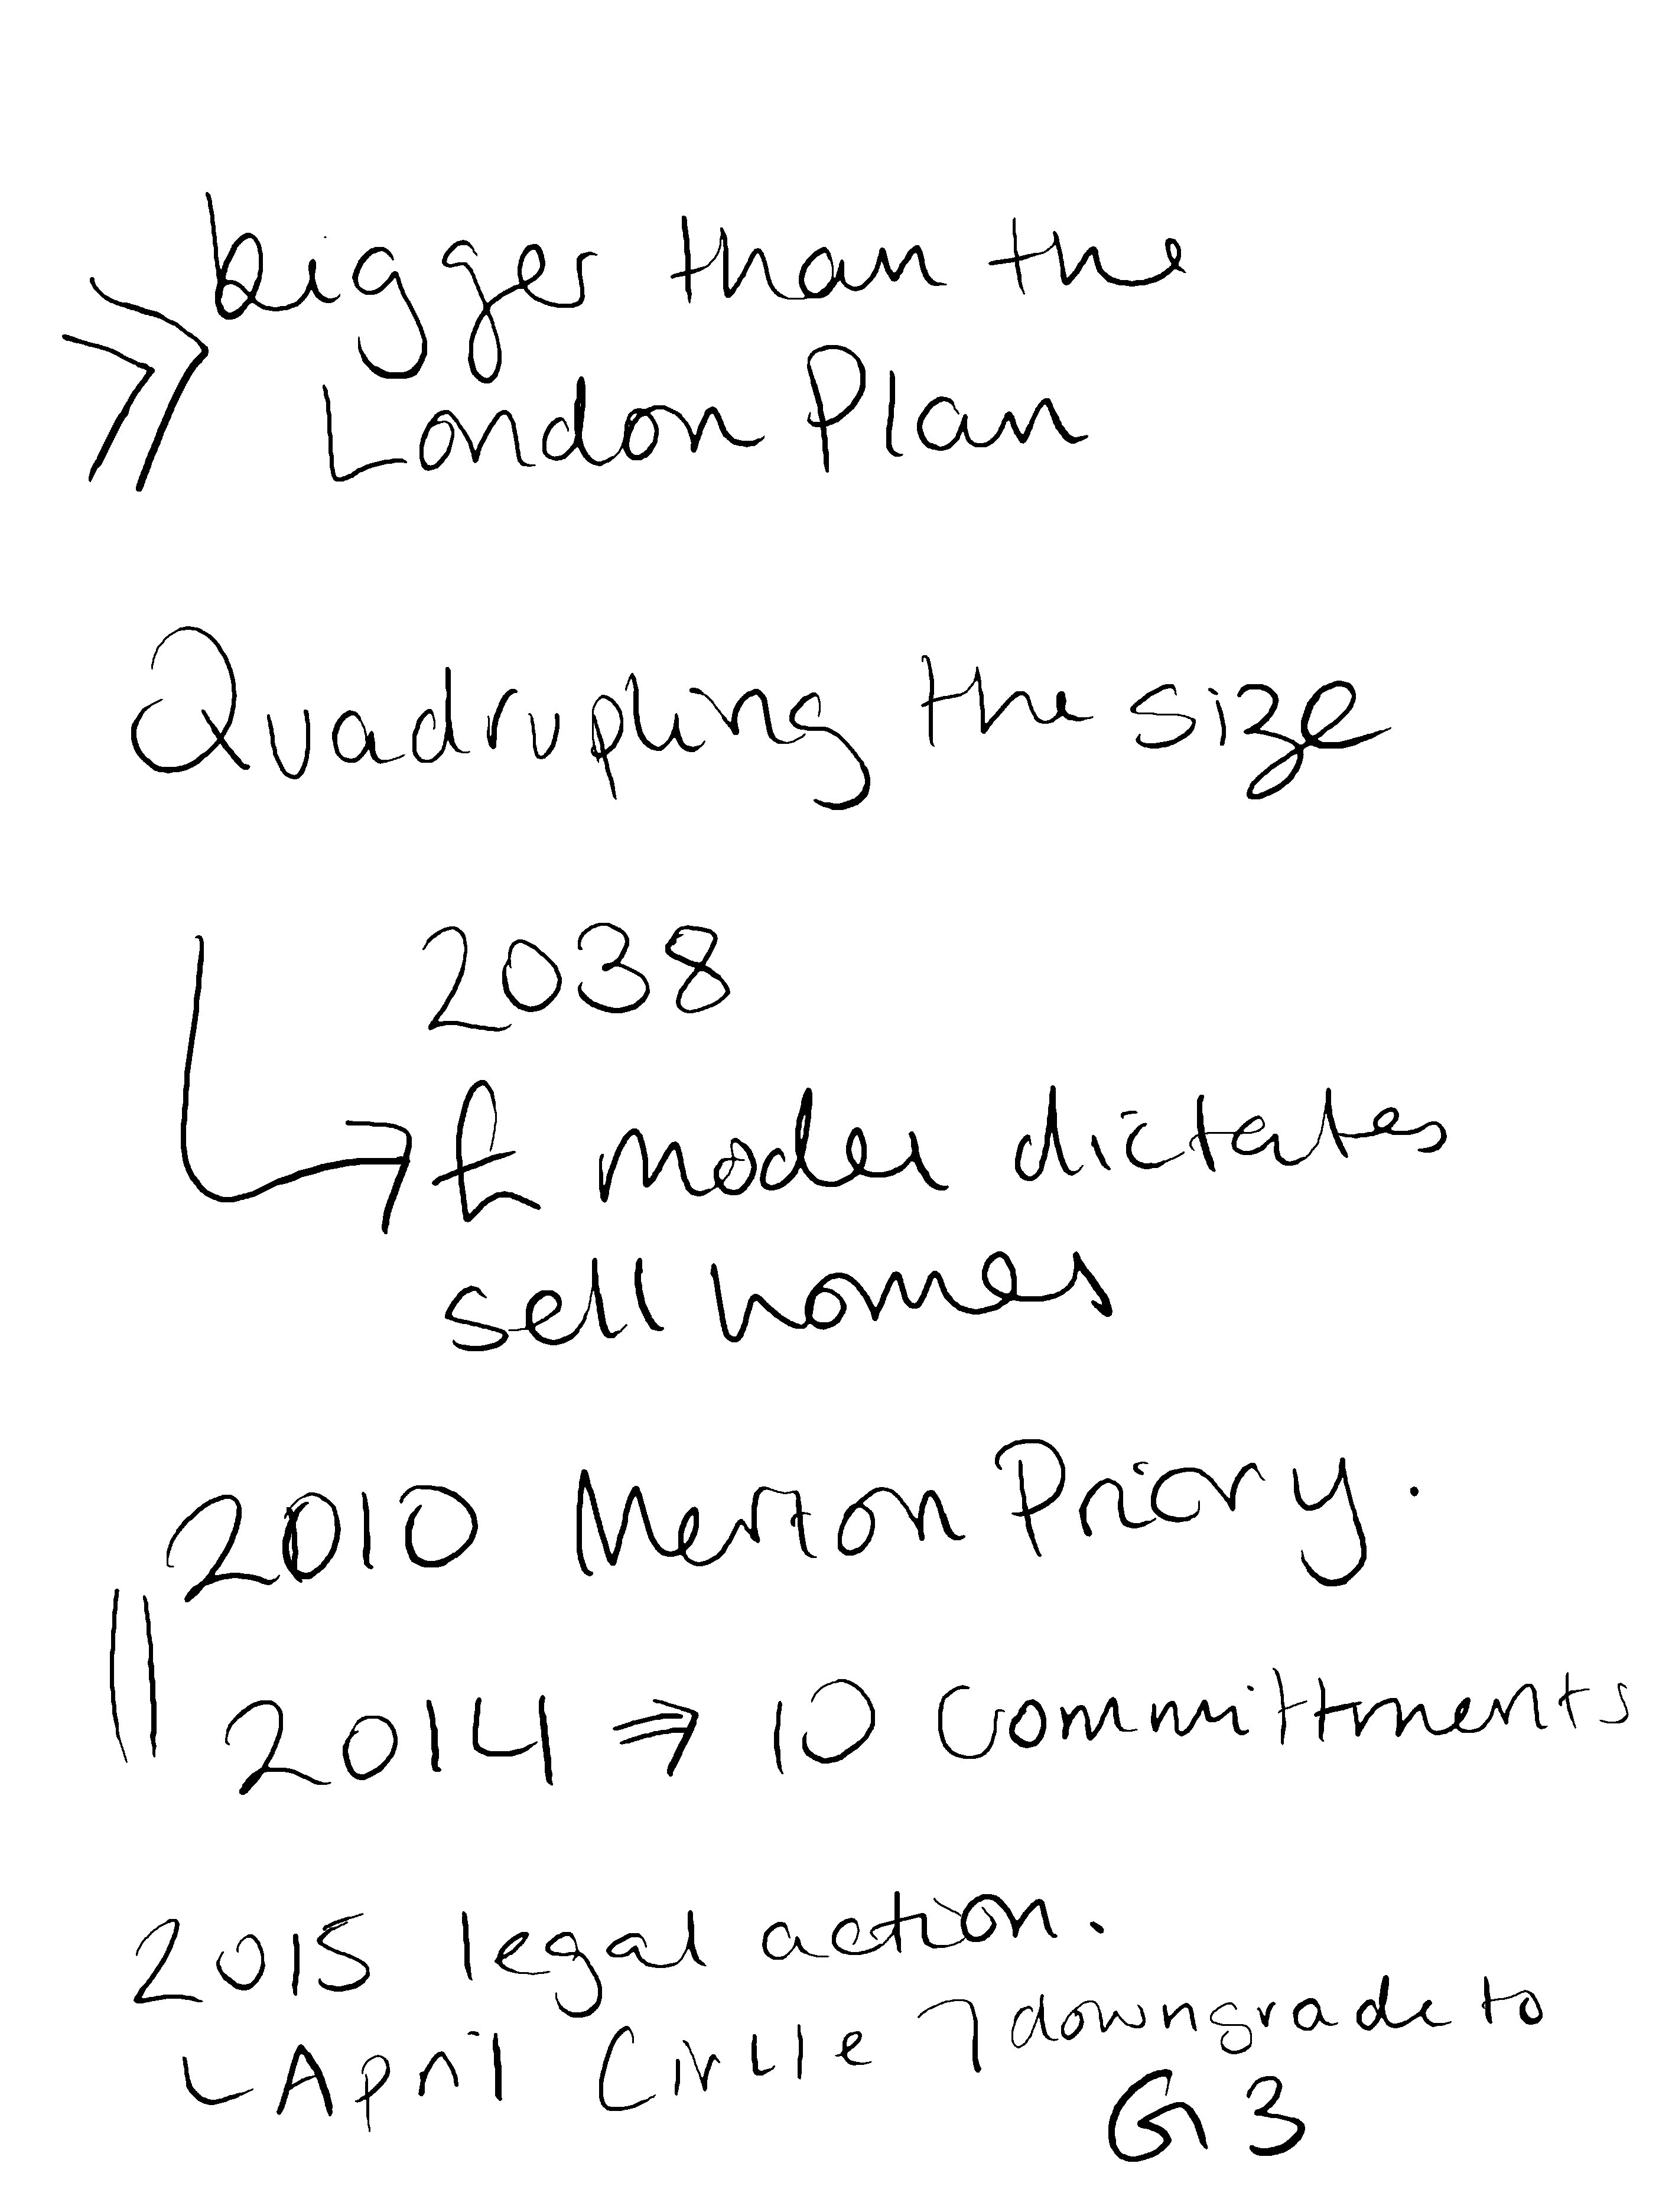 bigger than the
London Plan
Quadrupling the size
2038
£ model dictates
sell homes
2010 Merton Priory.
2014 ⇒ 10 Committments
2015 legal action.
April Circle downgrade to
G3